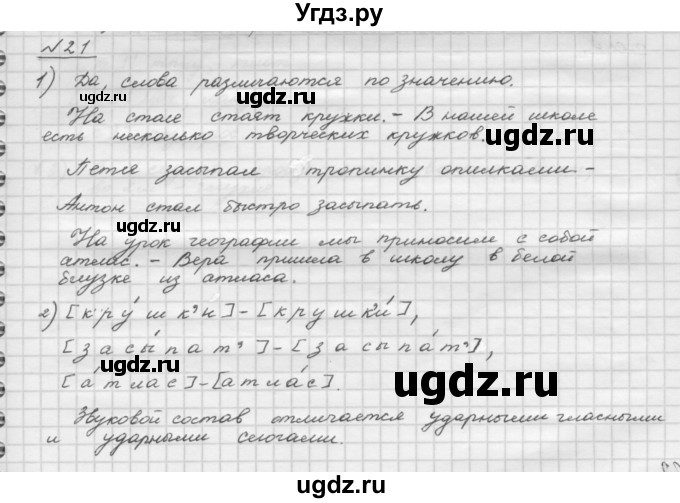 Угдз.ру
№21
1) Да, слова различаются по значению.
угдз.ру
На столе стоят кружки. - В нашей школе
есть несколько творческих кружков.
угдз.ру
Петя засыпал тропинку опилками. -
угдз.ру
Антон стал быстро засыпать.
угдз.ру
На урок географии мы приносим с собой
атлас. - Вера пришла в школу в белой
блузке из атласа.
угдз.ру
2) [кру́шк'и] - [крушки́],
[засы́пат'] - [засыпа́т'],
[а́тлас] - [атла́с].
угдз.ру
Звуковой состав отличается ударными гласными
и ударными слогами.
угдз.ру